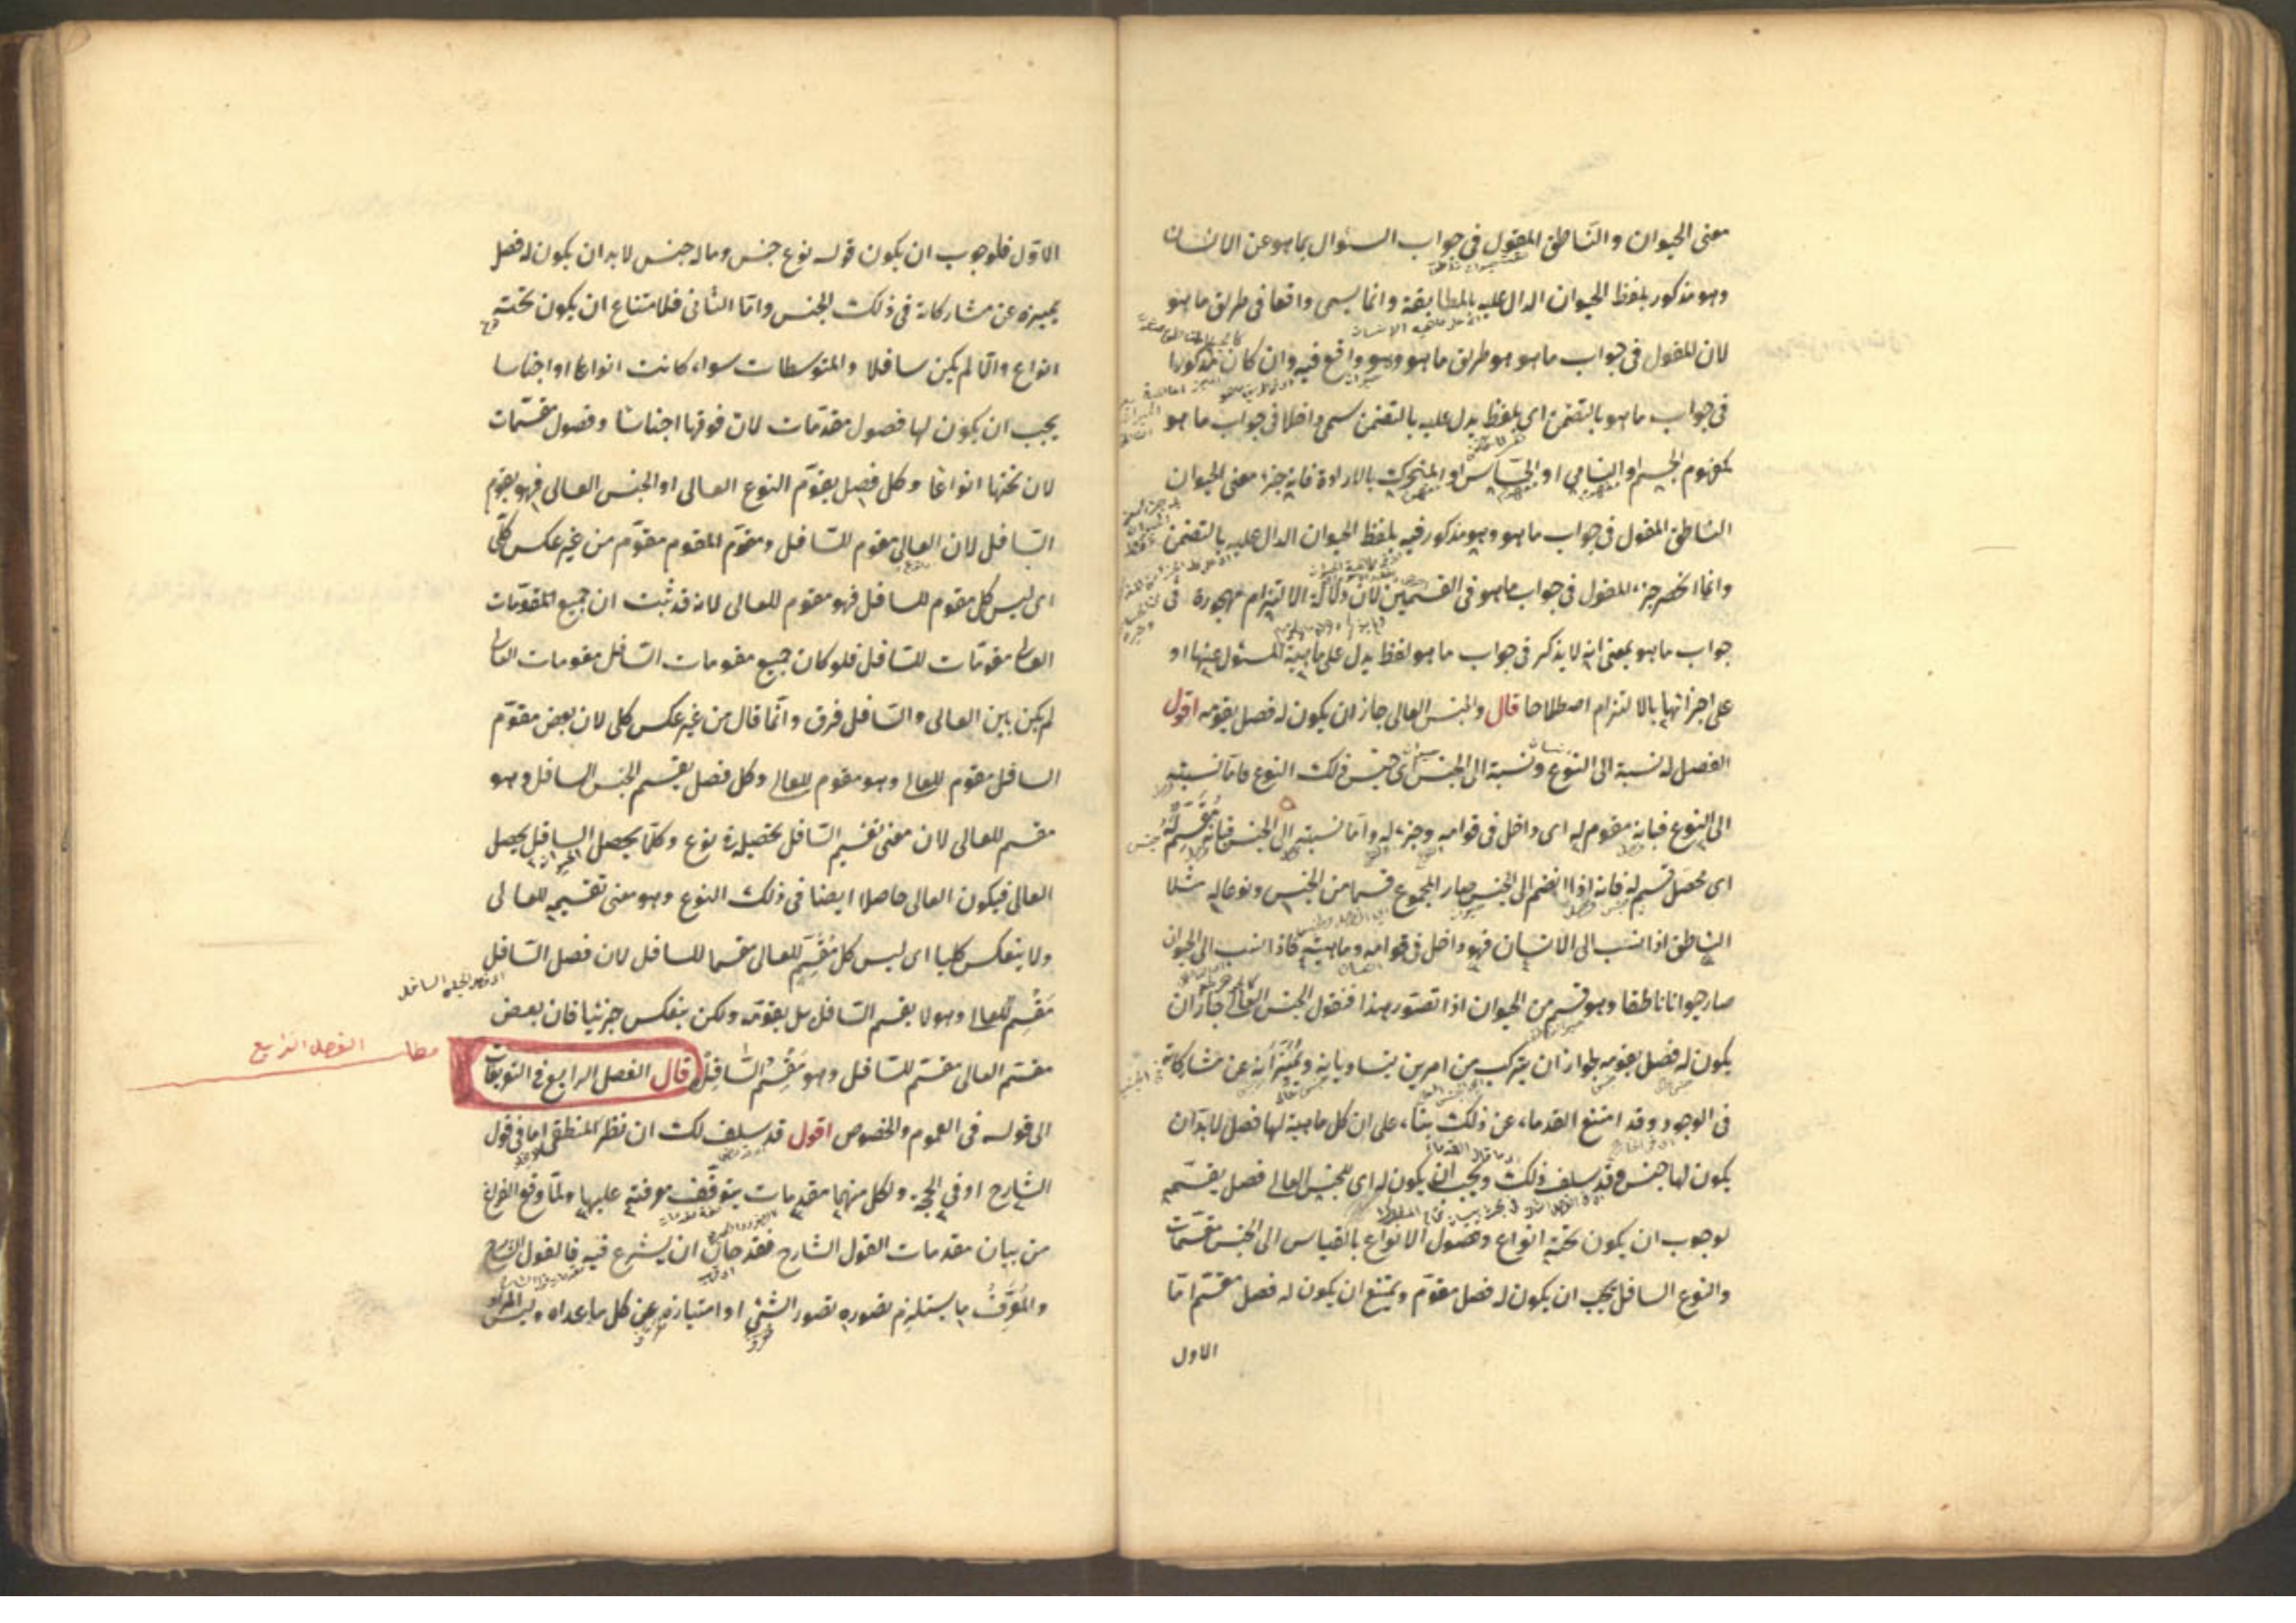 معنى الحيوان والناطق المقول في جواب السئوال بما هو عن الانسان
وهو مذكور بلفظ الحيوان الدال عليه بالمطابقة وانما يسمى واقعا في طريق ما هو
لان المقول في جواب ما هو هو طريق ما هو وهو واقع فيه وان كان مذكورا
في جواب ما هو بالتضمن اى بلفظ يدل عليه بالتضمن سمى داخلا في جواب ما هو
كمفهوم الجسم او النامي او الحساس او المتحرك بالارادة فانه جزء معنى الحيوان
الناطق المقول في جواب ما هو وهو مذكور فيه بلفظ الحيوان الدال عليه بالتضمن
وانما انحصر جزء المقول في جواب ما هو في القسمين لان دلالة الالتزام مهجورة في
جواب ما هو بمعنى انه لا يذكر في جواب ما هو لفظ يدل على ماهية المسئول عنها او
على اجزائها بالالتزام اصطلاحا قال والجنس العالى جاز ان يكون له فصل يقومه اقول
الفصل له نسبة الى النوع ونسبة الى الجنس اى جنس ذلك النوع فاما نسبته
الى النوع فبانه مقوم له اى داخل في قوامه وجزء له واما نسبته الى الجنس فبانه مقسم له
اى محصل قسم له فانه اذا انضم الى الجنس صار المجموع قسما من الجنس ونوعا له مثلا
الناطق اذا انسب الى الانسان فهو داخل في قوامه وماهيته فاذا انسب الى الحيوان
صار حيوانا ناطقا وهو قسم من الحيوان اذا تصور هذا فنقول الجنس العالى جاز ان
يكون له فصل يقومه لجواز ان يتركب من امرين يتساويانه ويميزانه عن مشاركاته
في الوجود وقد امتنع القدماء عن ذلك بناء على ان كل ماهية لها فصل لابد ان
يكون لها جنس وقد سلف ذلك ويجب ان يكون له اى للجنس العالى فصل يقسمه
لوجوب ان يكون تحته انواع وفصول الانواع بالقياس الى الجنس مقسمات
والنوع السافل يجب ان يكون له فصل مقوم ويمتنع ان يكون له فصل مقسم اما
الاول
الاول فلوجوب ان يكون فوقه نوع جنس وماله جنس لابد ان يكون له فصل
يميزه عن مشاركاته في ذلك الجنس واما الثانى فلامتناع ان يكون تحته
انواع والا لم يكن سافلا والمتوسطات سواء كانت انواعا او اجناسا
يجب ان يكون لها فصول مقومات لان فوقها اجناسا وفصول مقسمات
لان تحتها انواعا وكل فصل يقوم النوع العالى او الجنس العالى فهو يقوم
السافل لان العالى مقوم للسافل ومقوم المقوم مقوم من غير عكس كلى
اى ليس كل مقوم للسافل فهو مقوم للعالى لانه قد ثبت ان جميع المقومات
العالى مقومات للسافل فلو كان جميع مقومات السافل مقومات العالى
لم يكن بين العالى والسافل فرق وانما قال من غير عكس كلى لان بعض مقوم
السافل مقوم للعالى وهو مقوم للعالى وكل فصل يقسم الجنس السافل وهو
مقسم للعالى لان معنى تقسيم السافل تحصيله في نوع وكلما يحصل السافل يحصل
العالى فيكون العالى حاصلا ايضا في ذلك النوع وهو معنى تقسيمه للعالى
ولا ينعكس كليا اى ليس كل مقسم للعالى مقسما للسافل لان فصل السافل
مقسم للعالى وهو لا يقسم السافل بل يقومه ولكن ينعكس جزئيا فان بعض
مقسم العالى مقسم للسافل وهو مقسم السافل قال الفصل الرابع في التعريفات
مطلب الفصل الرابع
الى قوله في العموم والخصوص اقول قد سلف لك ان نظر المنطقى اما في قول
الشارح او في الحجة ولكل منهما مقدمات يتوقف معرفته عليها ولما وقع الفراغ
من بيان مقدمات القول الشارح فقد حان ان يشرع فيه فالقول الشارح
والمعرف ما يستلزم تصوره تصور الشئ او امتيازه عن كل ما عداه وليس المراد